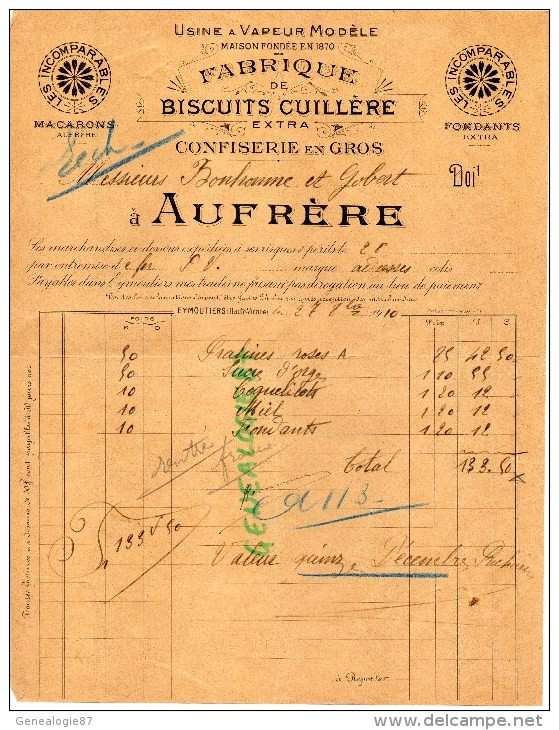 Usine à Vapeur Modèle
MAISON FONDÉE EN 1870
FABRIQUE
DE
BISCUITS CUILLÈRE
EXTRA
CONFISERIE EN GROS
LES INCOMPARABLES
MACARONS
AUFRÈRE
LES INCOMPARABLES
FONDANTS
EXTRA
Messieurs Bonhomme et Gobert
Doit
à AUFRÈRE
Les marchandises ci-dessous expédiées à ses risques & périls le 28
par entremise d P.V. marque adresses colis
Payables dans Eymoutiers mes traites ne faisant pas dérogation au lieu de paiement
EYMOUTIERS (Haute-Vienne) le 27 8bre 1910
POIDS
K D
Prix F C
50 Pralines roses A 85 42 50
50 Sucre d'orge 1 10 55
10 Coquelicots 1 20 12
10 Miel 1 20 12
10 Fondants 1 20 12
Total 133.50
GENEALOGIE87
113
133 f 50
Valeur quinze Décembre
à Reporter
Genealogie87
delcampe.net